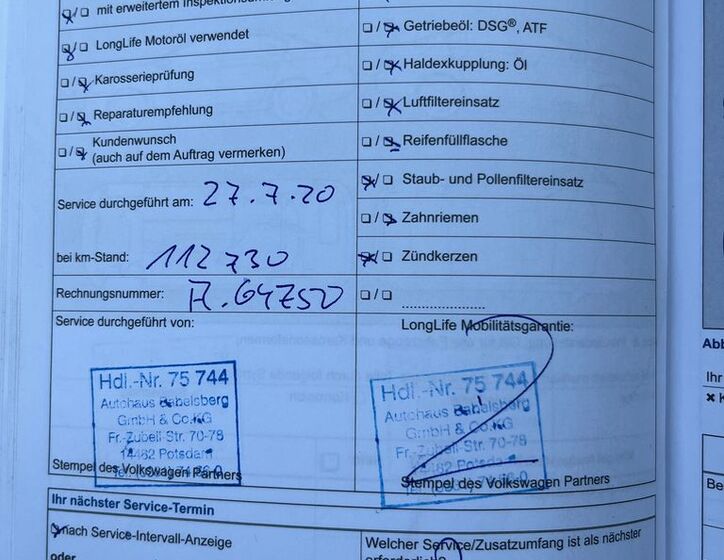 mit erweitertem
☒/☐ LongLife Motoröl verwendet
☐/☒ Karosserieprüfung
☐/☒ Reparaturempfehlung
☐/☒ Kundenwunsch
(auch auf dem Auftrag vermerken)
Service durchgeführt am: 27.7.20
bei km-Stand: 112 730
Rechnungsnummer: 64750
Service durchgeführt von:
Hdl.-Nr. 75 744
Autohaus Babelsberg
GmbH & Co.KG
Fr.-Zubeil-Str. 70-78
14482 Potsdam
Stempel des Volkswagen Partners
☐/☒ Getriebeöl: DSG®, ATF
☐/☒ Haldexkupplung: Öl
☐/☒ Luftfiltereinsatz
☐/☒ Reifenfüllflasche
☒/☐ Staub- und Pollenfiltereinsatz
☐/☒ Zahnriemen
☒/☐ Zündkerzen
☐/☐
LongLife Mobilitätsgarantie:
Hdl.-Nr. 75 744
Autohaus Babelsberg
GmbH & Co.KG
Fr.-Zubeil-Str. 70-78
14482 Potsdam
Stempel des Volkswagen Partners
Ihr nächster Service-Termin
nach Service-Intervall-Anzeige
oder
Welcher Service/Zusatzumfang ist als nächster
Abb
Ihr
Be